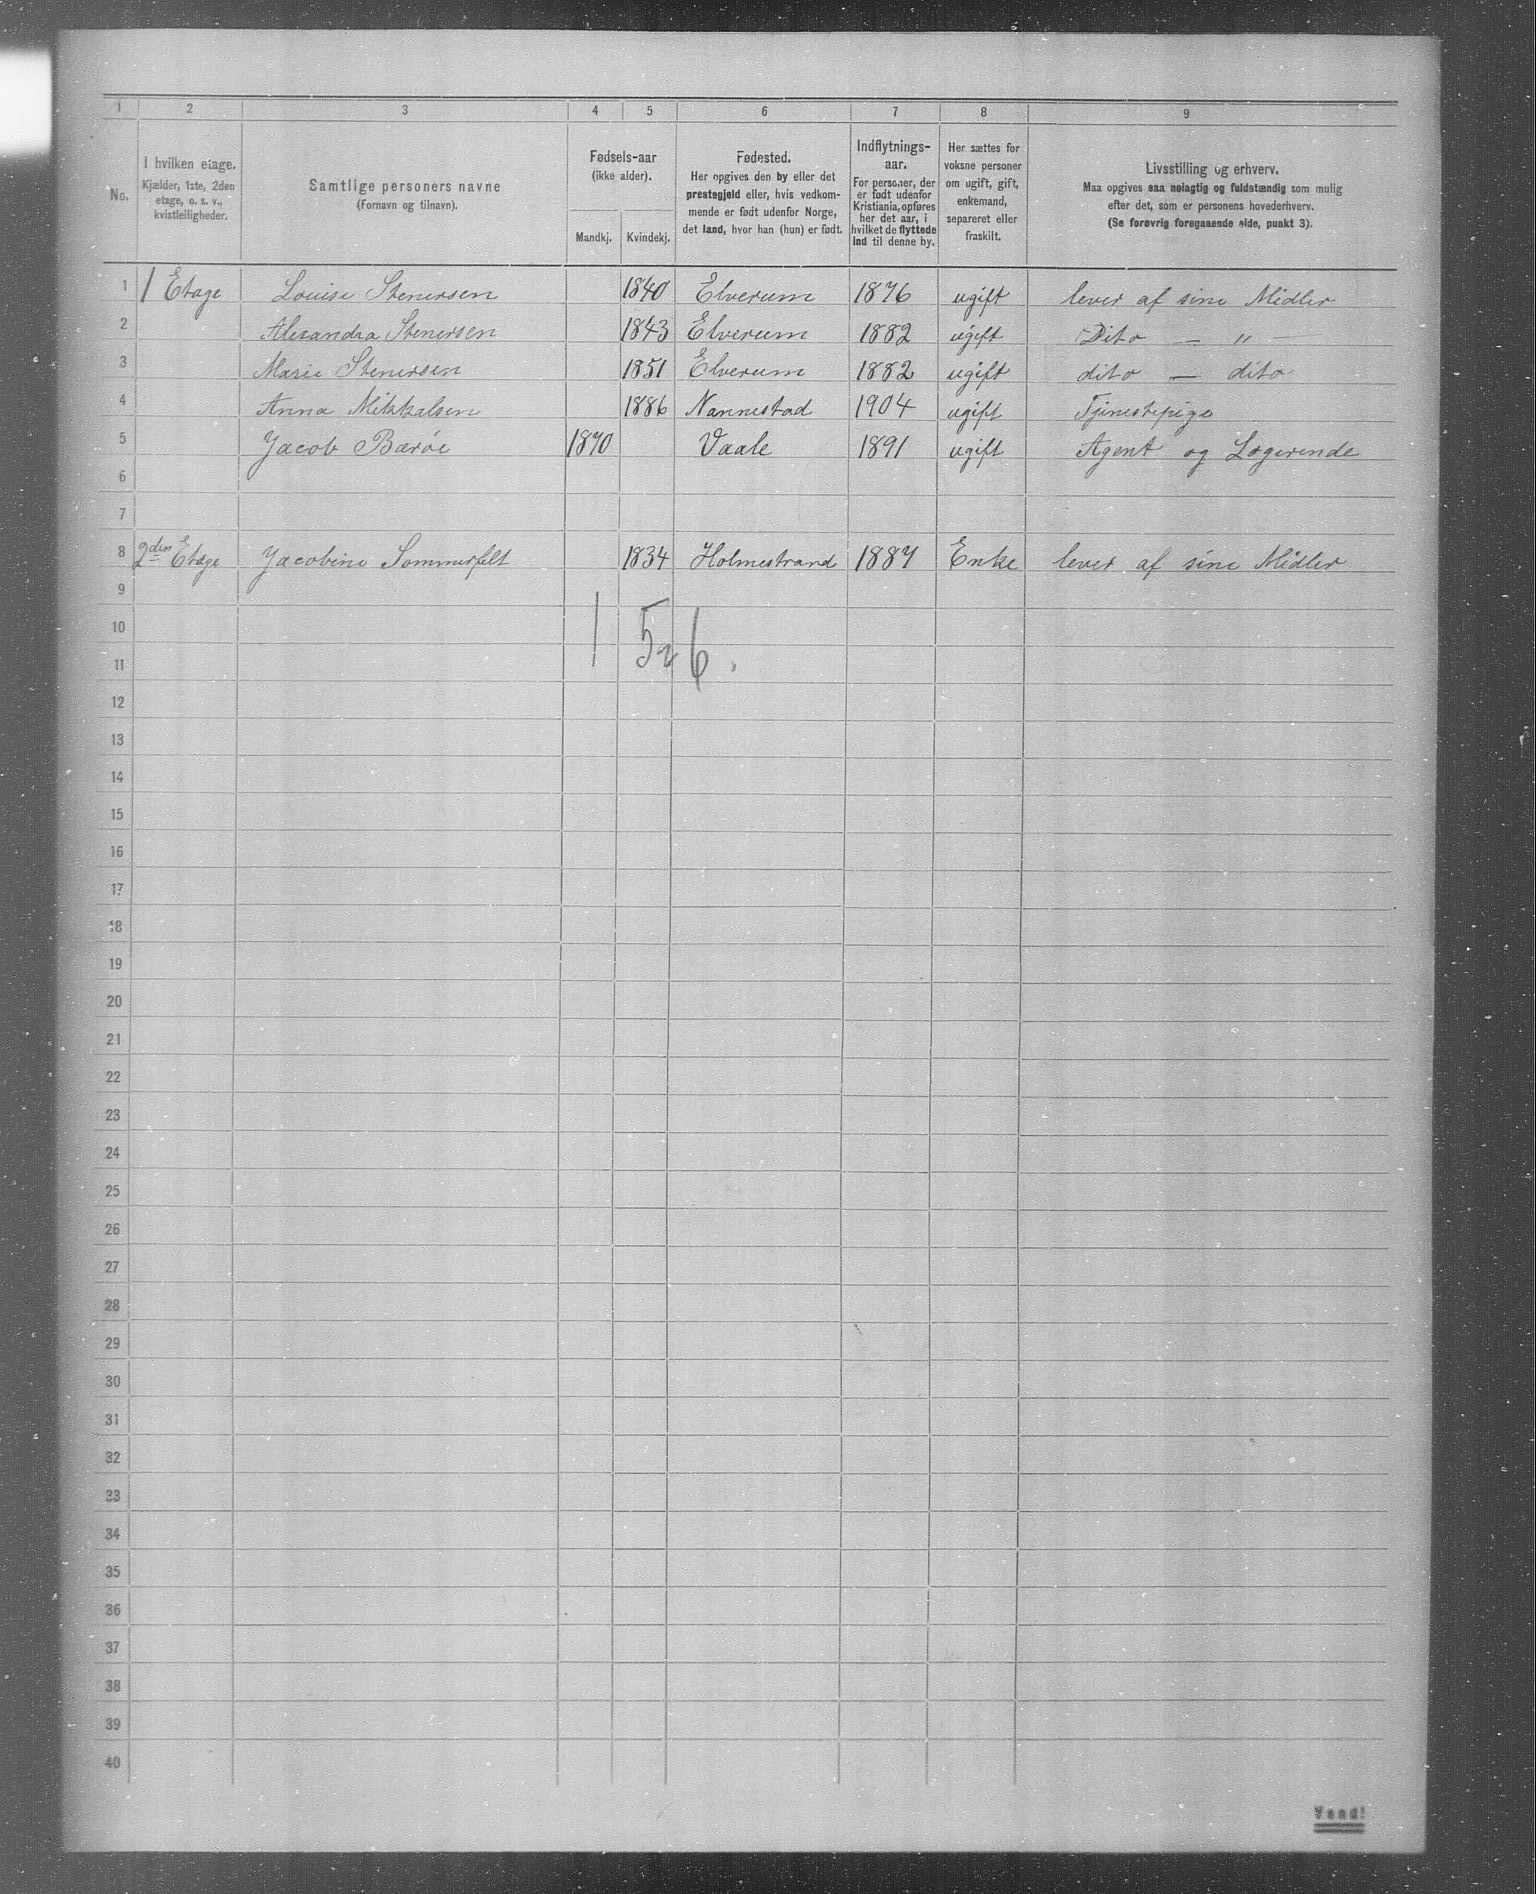 1 2 3 4 5 6 7 8 9
No.
I hvilken etage.
Kjælder, 1ste, 2den
etage, o. s. v.,
kvistleiligheder.
Samtlige personers navne
(Fornavn og tilnavn).
Fødsels-aar
(ikke alder).
Mandkj. Kvindekj.
Fødested.
Her opgives den by eller det
prestegjeld eller, hvis vedkom-
mende er født udenfor Norge,
det land, hvor han (hun) er født.
Indflytnings-
aar.
For personer, der
er født udenfor
Kristiania, opføres
her det aar, i
hvilket de flyttede
ind til denne by.
Her sættes for
voksne personer
om ugift, gift,
enkemand,
separeret eller
fraskilt.
Livsstilling og erhverv.
Maa opgives saa nøiagtig og fuldstændig som mulig
efter det, som er personens hovederhverv.
(Se forøvrig foregaaende side, punkt 3).
1 1 Etage Louise Stenersen 1840 Elverum 1876 ugift lever af sine Midler
2 Alexandra Stenersen 1843 Elverum 1882 ugift Dito — " —
3 Marie Stenersen 1851 Elverum 1882 ugift dito — dito
4 Anna Mikkalsen 1886 Nannestad 1904 ugift Tjenestepige
5 Jacob Barøe 1870 Vaale 1891 ugift Agent og Logerende
6
7
8 2den Etage Jacobine Sommerfelt 1834 Holmestrand 1887 Enke lever af sine Midler
9
10 1 5 6.
11
12
13
14
15
16
17
18
19
20
21
22
23
24
25
26
27
28
29
30
31
32
33
34
35
36
37
38
39
40
Vend!